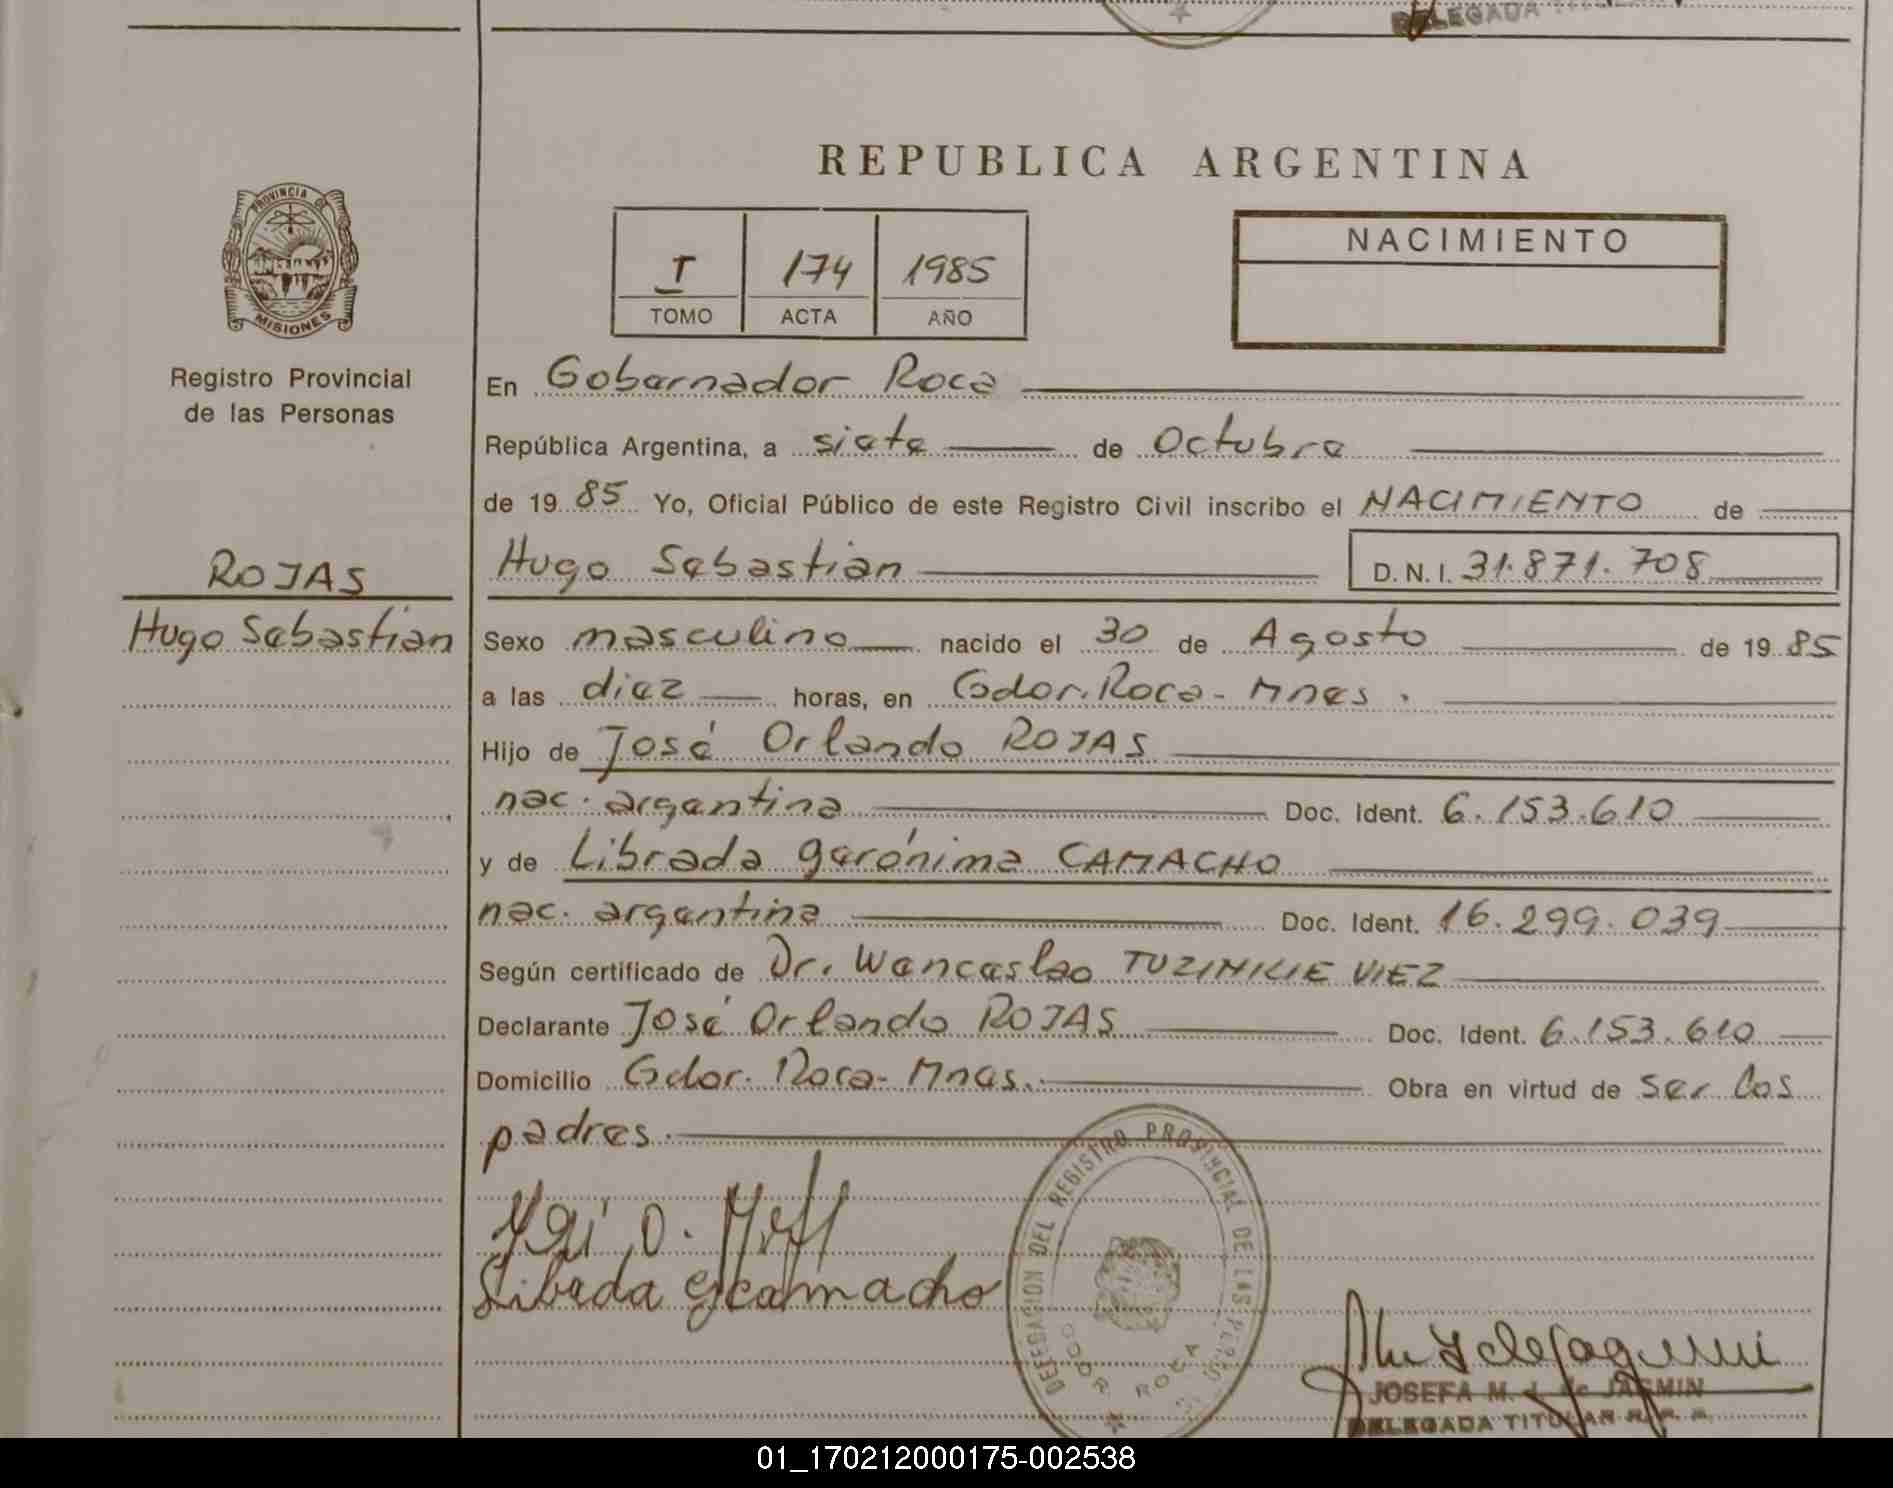 DELEGADA TITULAR
REPUBLICA ARGENTINA
PROVINCIA DE
MISIONES
Registro Provincial
de las Personas
I 174 1985
TOMO ACTA AÑO
NACIMIENTO
En Gobernador Roca
República Argentina, a siete de Octubre
de 19 85 Yo, Oficial Público de este Registro Civil inscribo el NACIMIENTO de
ROJAS
Hugo Sebastian
Hugo Sebastian D. N. I. 31.871.708
Sexo masculino nacido el 30 de Agosto de 19 85
a las diez horas, en Gdor. Roca - Mnes.
Hijo de José Orlando ROJAS
nac. argentina Doc. Ident. 6.153.610
y de Librada gerónima CAMACHO
nac. argentina Doc. Ident. 16.299.039
Según certificado de Dr. Wenceslao
Declarante José Orlando ROJAS Doc. Ident. 6.153.610
Domicilio Gdor. Roca - Mnes. Obra en virtud de ser los
padres.
DELEGACION DEL REGISTRO PROVINCIAL DE LAS PERSONAS
GDOR ROCA
JOSEFA M. J. de JASMIN
DELEGADA TITULAR R. P. P.
01_170212000175-002538